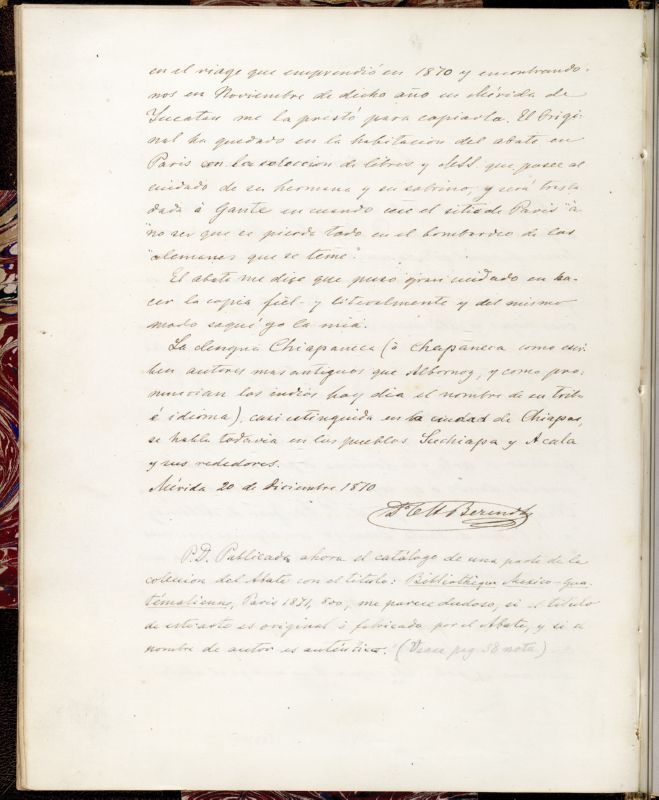 en el viage que emprendió en 1870 y encontrando-
nos en Noviembre de dicho año en Mérida de
Yucatan me la prestó para copiarla. El Origi-
nal ha quedado en la habitacion del abate en
Paris con la coleccion de libros y MSS. que posee al
cuidado de su hermana y su sobrino, y será trasla
dada à Gante en cuando cese el sitio de Paris "à
"no ser que se pierda todo en el bombardeo de los
"alemanes que se teme".
El abate me dise que puso gran cuidado en ha-
cer la copia fiel- y literalmente y del mismo
modo saqué yo la mia.
La lengua Chiapaneca (ò chapaneca como escri-
ben autores mas antiguos que Albornoz, y como pro-
nuncian los indios hoy dia el nombre de su tribu
é idioma), casi estinguida en la ciudad de Chiapas,
se habla todavia en los pueblos Suchiapa y Acala
y sus rededores.
Mérida 20 de Diciembre 1870
Dr C H Berendt
P.D. Publicada ahora el catálogo de una parte de la
coleccion del Abate con el titulo: Bibliothèque Mexico-Gua-
témalienne, Paris 1871, 8vo, me parece dudoso, si el titulo
de este arte es original ò fabricado por el Abate, y si el
nombre de autor es auténtico. (Vease pag 58 nota)